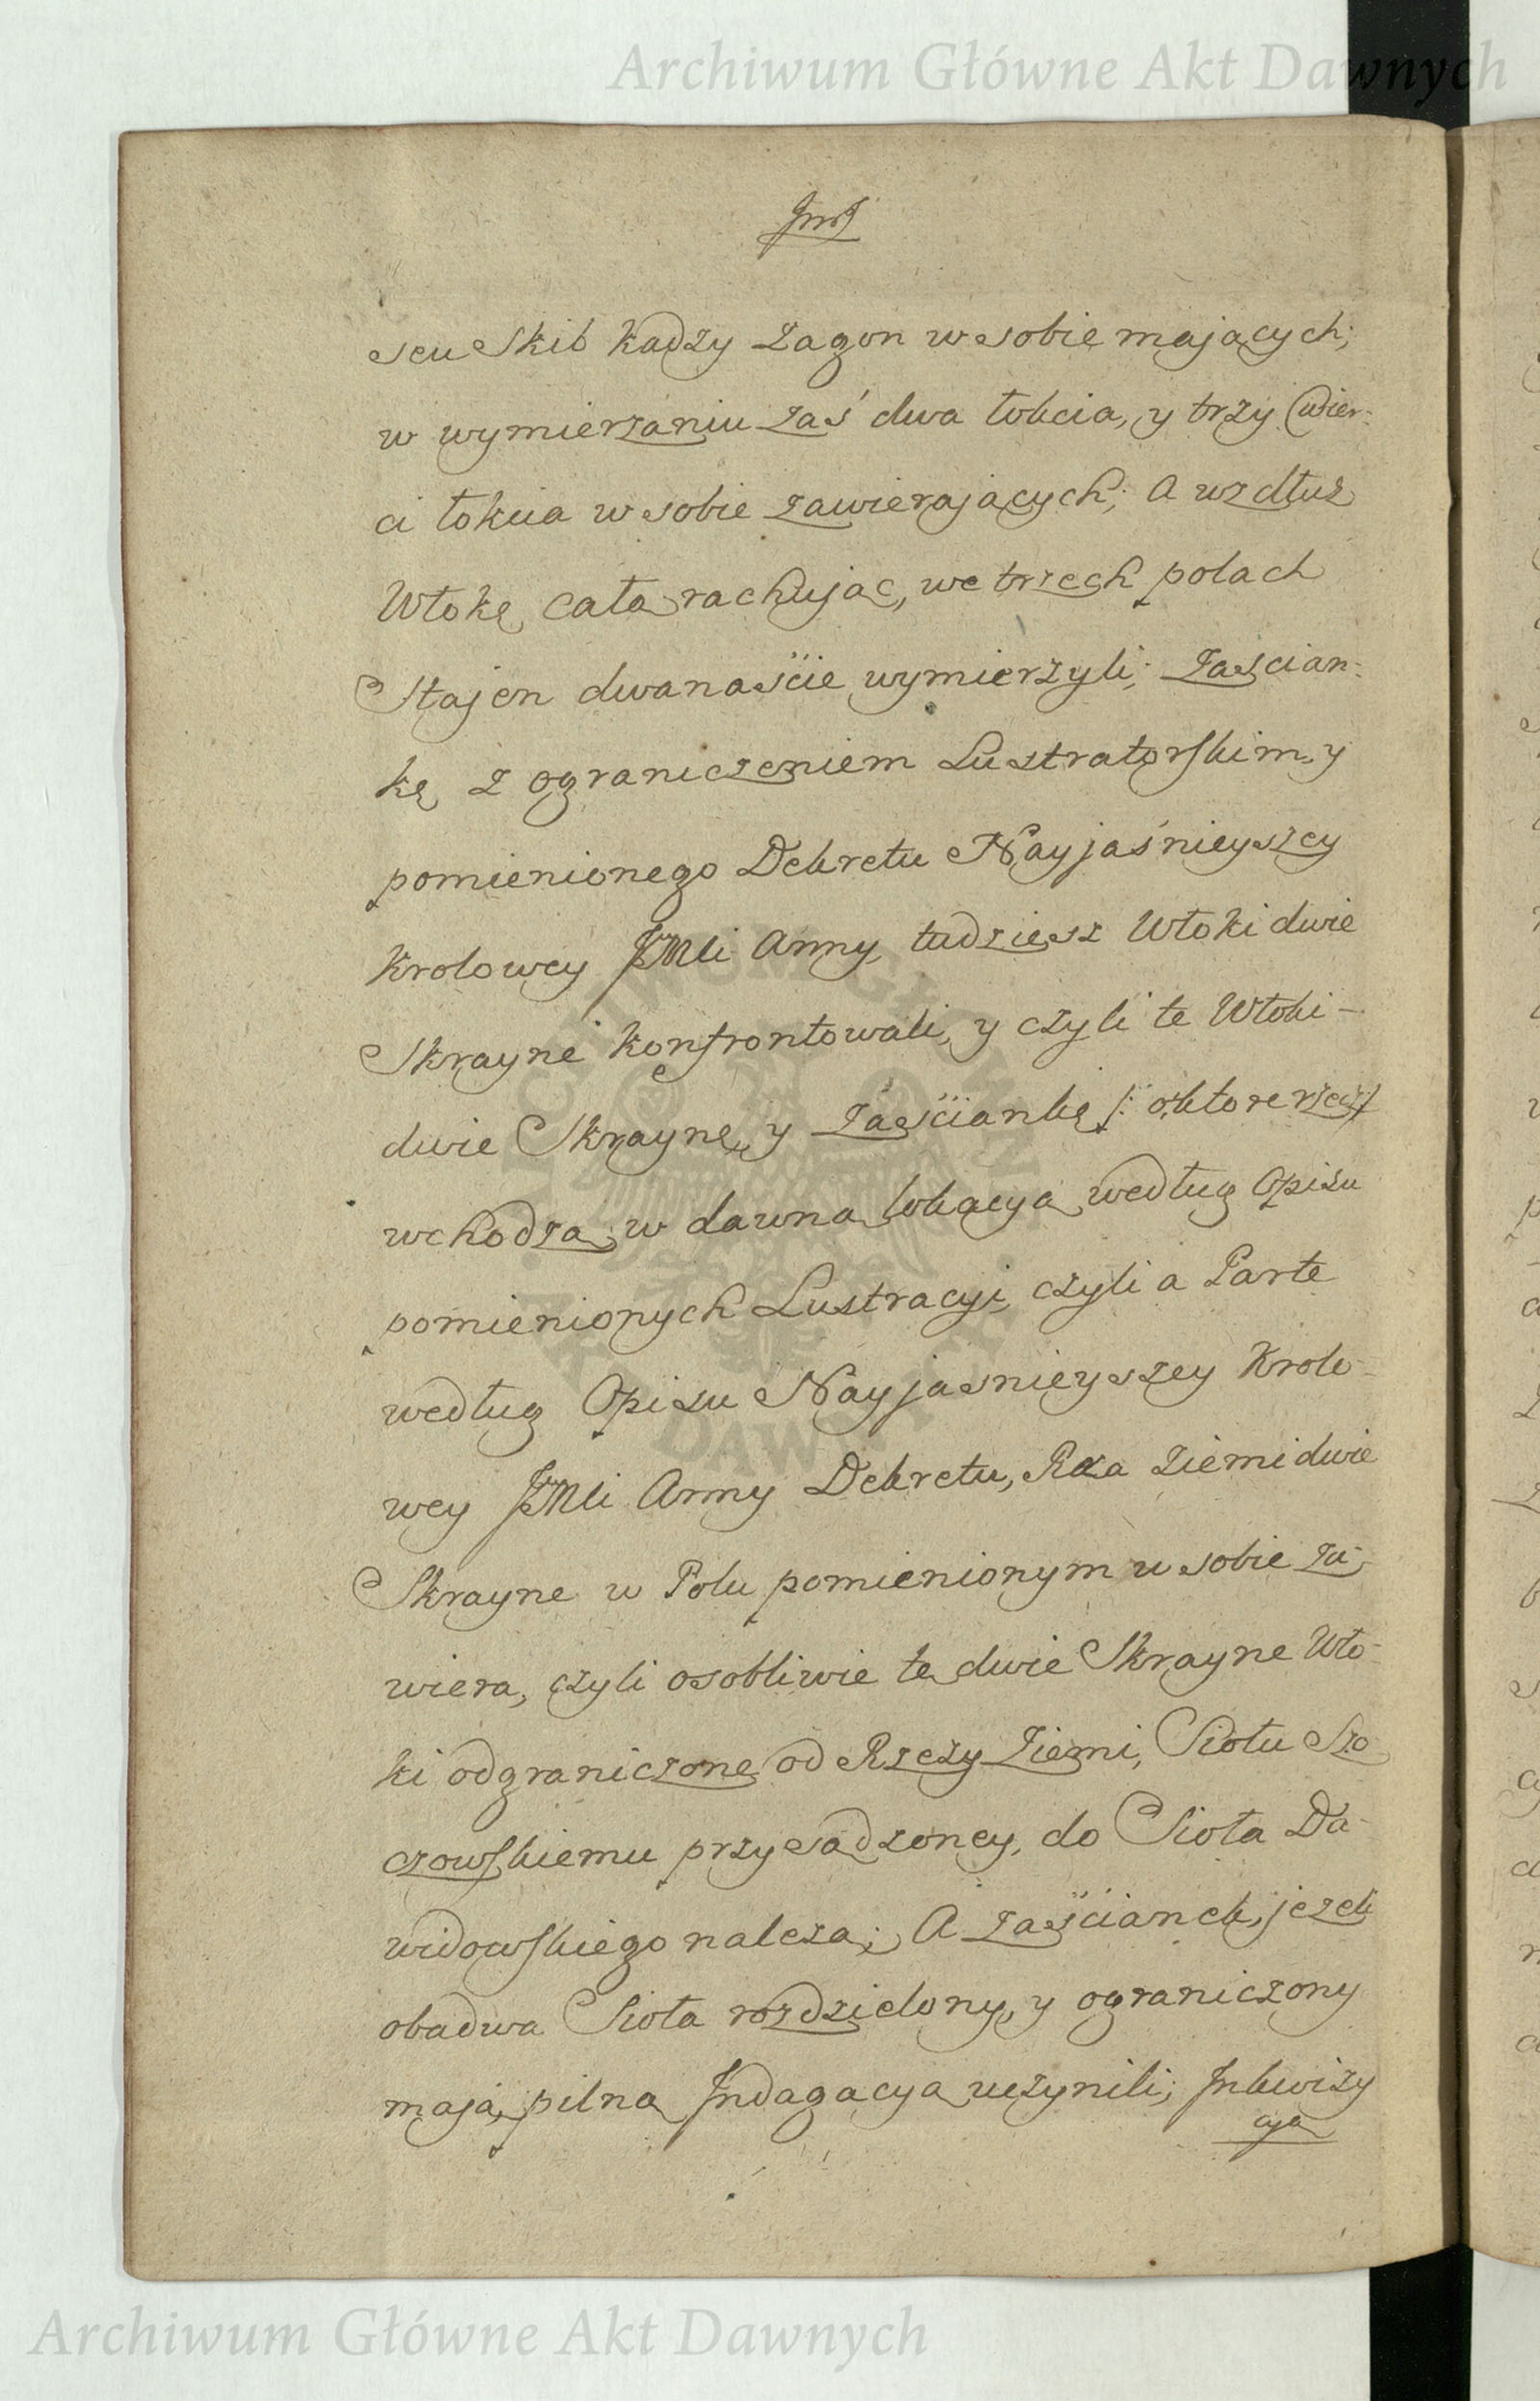 Archiwum Główne Akt Dawnych
sciu Skib kadzy zagon w sobie maiących;
w wymierzaniu zaś dwa łokcia, y trzy Cwier-
ci łokcia w sobie zawieraiących; A wzdłuż
Włokę całą rachuiąc, we trzech polach
Stajen dwanaście wymierzyli; Zaścian-
kę z ograniczeniem Lustratorskim, y
pomienionego Dekretu Nayjaśnieyszey
Krolowey JMCi Anny, tudziesz Włoki dwie
Skrayne konfrontowali, y czyli te Włoki -
dwie Skrayne, y Zaściankę /: o ktore rzecz :/
wchodzą w dawną lokacyą według Opisu
pomienionych Lustracyi, czyli a Parte
według Opisu Nayjasnieyszey Krolo-
wey JMCi Anny Dekretu, Rza ziemi dwie
Skrayne w Polu pomienionym w sobie za-
wiera, czyli osobliwie te dwie Skrayne Wło-
ki odgraniczone od Rzezy Ziemi, Siołu Szo
czowskiemu przysądzoney, do Sioła Da-
widowskiego należą; A Zaścianek, jeżeli
obadwa Sioła rozdzielony, y ograniczony
mają, pilną Indagacyą uczynili; Inkwizy
cyą
ARCHIWUM GŁÓWNE AKT DAWNYCH
Archiwum Główne Akt Dawnych